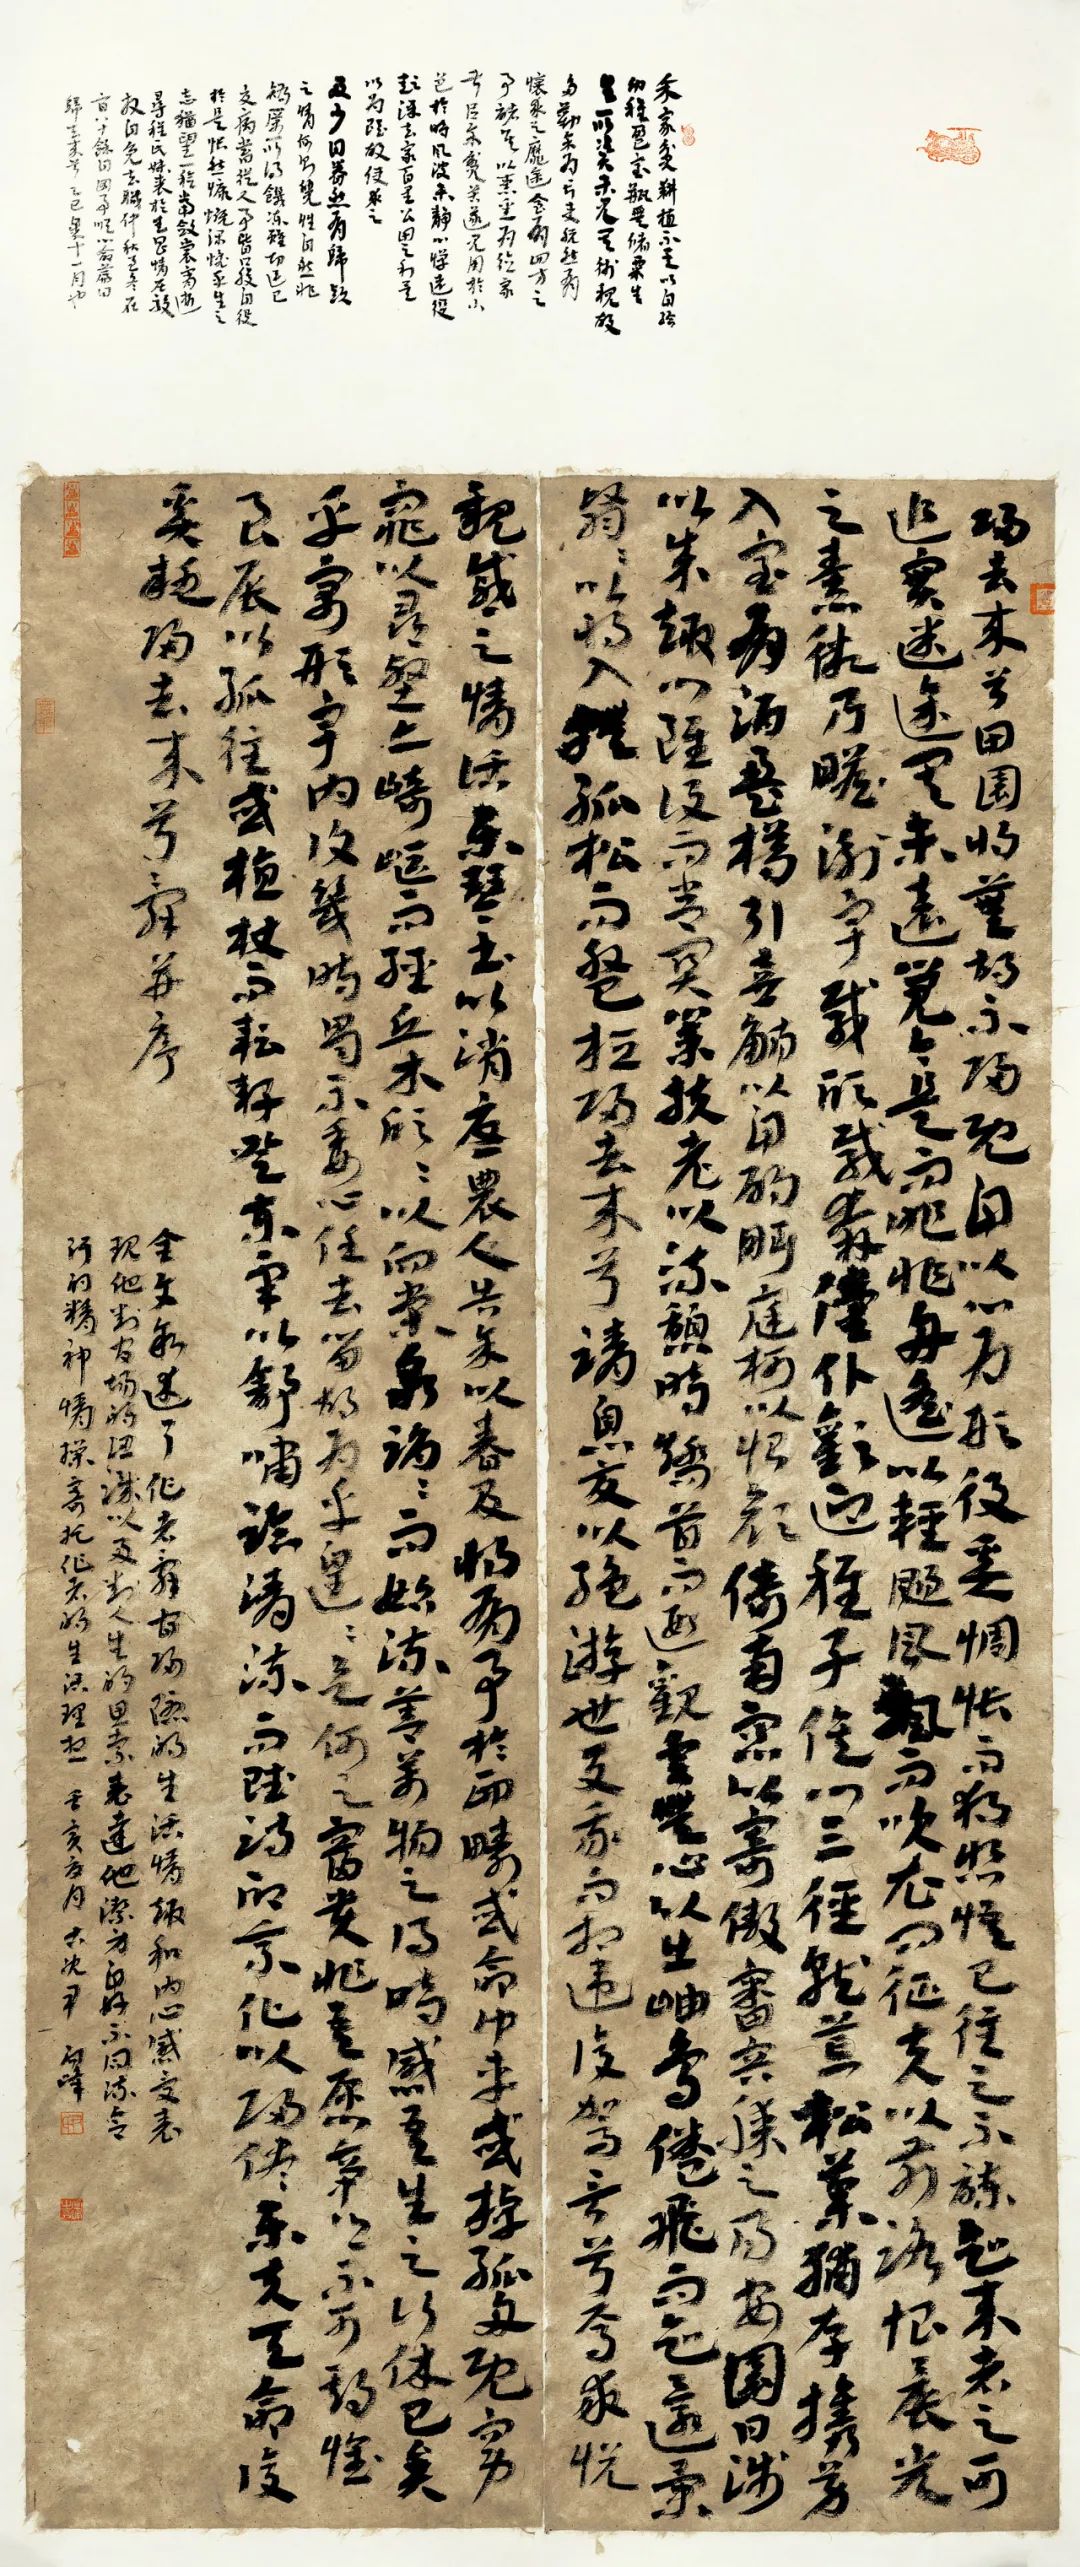 余家貧耕植不足以自給
幼稚盈室瓶無儲粟生
生所資未見其術親故
多勸余為長吏脫然有
懷求之靡途會有四方之
事諸侯以惠愛為德家
叔以余貧苦遂見用於小
邑於時風波未靜心憚遠役
彭澤去家百里公田之利足
以為酒故便求之
及少日眷然有歸歟
之情何則質性自然非
矯厲所得饑凍雖切違己
交病嘗從人事皆口腹自役
於是悵然慷慨深愧平生之
志猶望一稔當斂裳宵逝
尋程氏妹喪於武昌情在駿
奔自免去職仲秋至冬在
官八十餘日因事順心命篇曰
歸去來兮乙巳歲十一月也
歸去來兮田園將蕪胡不歸既自以心為形役奚惆悵而獨悲悟已往之不諫知來者之可
追實迷途其未遠覺今是而昨非舟遙以輕颺風飄而吹衣問征夫以前路恨晨光
之熹微乃瞻衡宇載欣載奔僮仆歡迎稚子候門三徑就荒松菊猶存攜幼
入室有酒盈樽引壺觴以自酌眄庭柯以怡顏倚南窗以寄傲審容膝之易安園日涉
以成趣門雖設而常關策扶老以流憩時矯首而遐觀雲無心以出岫鳥倦飛而知還景
翳〻以將入撫孤松而盤桓歸去來兮請息交以絕游世與我而相違復駕言兮焉求悅
親戚之情話樂琴書以消憂農人告余以春及將有事於西疇或命巾車或棹孤舟既窈
窕以尋壑亦崎嶇而經丘木欣〻以向榮泉涓〻而始流善萬物之得時感吾生之行休已矣
乎寓形宇內復幾時曷不委心任去留胡為乎遑〻兮何之富貴非吾願帝鄉不可期懷
良辰以孤往或植杖而耘耔登東皋以舒嘯臨清流而賦詩聊乘化以歸盡樂夫天命復
奚疑歸去來兮辭并序
全文敘述了作者辭官歸隱的生活情趣和內心感受表
現他對官場的認識以及對人生的思索表達他潔身自好不同流合
污的精神情操寄托作者的生活理想